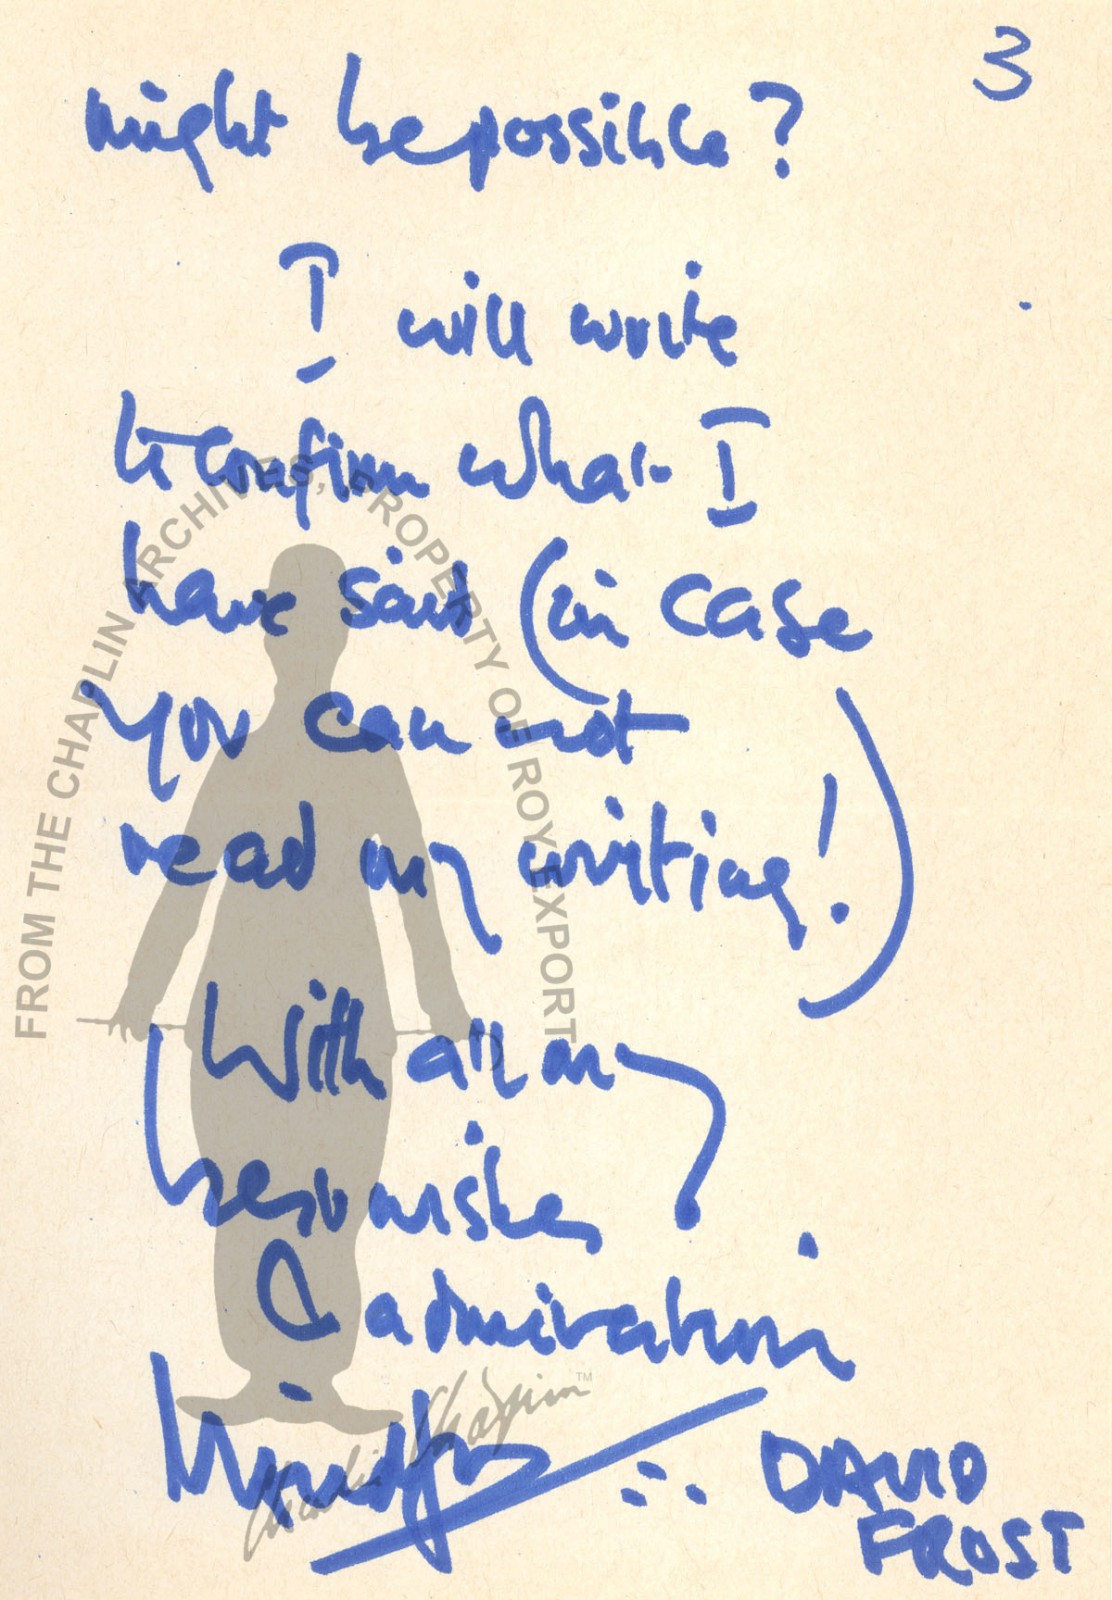 3
might be possible?
I will write
to confirm what I
have said (in case
you can not
read my writing!)
With all my
best wishes
& admiration
DAVID
FROST
FROM THE CHAPLIN ARCHIVES, PROPERTY OF ROY EXPORT
Charlie Chaplin™